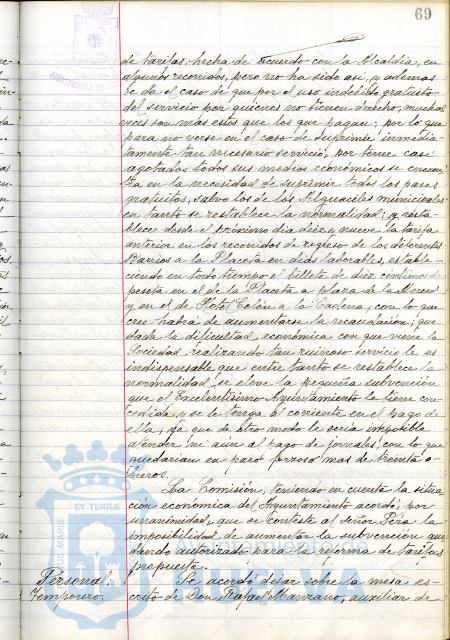 69
de tarifas, hecha de acuerdo con la Alcaldía, en
algunos recorridos, pero no ha sido así, y ademas
se da el caso de que por el uso indebido gratuito
del servicio por quienes no tienen derecho, muchas
veces son más estos que los que pagan; por lo que
para no verse en el caso de suprimir inmedia-
tamente tan necesario servicio, por tener casi
agotados todos sus medios económicos se encuen-
tra en la necesidad de suprimir todos los pases
gratuitos, salvo los de los Alguaciles municipales
en tanto se restablece la normalidad; y resta-
blecer desde el próximo día diez y nueve la tarifa
anterior en los recorridos de regreso de los diferentes
Barrios a la Placeta en días laborables, estable-
ciendo en todo tiempo el billete de diez céntimos de
peseta en el de la Placeta a plaza de la Merced
y en el de Hotel Colón a la Cadena, con lo que
cree habrá de aumentarse la recaudación; que
dada la dificultad económica con que viene la
Sociedad realizando tan ruinoso servicio le es
indispensable que entre tanto se restablece la
normalidad, se eleve la pequeña subvención
que el Excelentísimo Ayuntamiento le tiene con-
cedida, y se le tenga al corriente en el pago de
ella, ya que de otro modo le sería imposible
atender ni aún al pago de jornales, con lo que
quedarían en paro forzoso mas de treinta o-
breros.
La Comisión, teniendo en cuenta la situa-
ción económica del Ayuntamiento acordó, por
unanimidad, que se conteste al Señor Pira la
imposibilidad de aumentar la subvención que-
dando autorizado para la reforma de tarifas
propuesta.
Personal.
Temporero.
Se acordó dejar sobre la mesa es-
crito de Don Rafael Manzano, auxiliar de